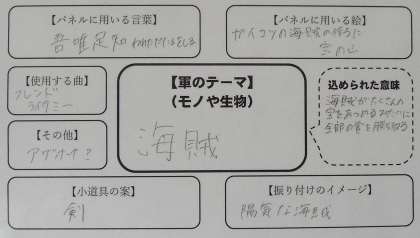 【パネルに用いる言葉】
吾唯足知 われただたるをしる
【パネルに用いる絵】
ガイコツの海賊の後ろに
宝の山
【使用する曲】
フレンド
ライクミー
【軍のテーマ】
(モノや生物)
海賊
込められた意味
海賊がたくさんの
全部の賞を勝ち取る
【その他】
【小道具の案】
剣
【振り付けのイメージ】
陽気な海賊